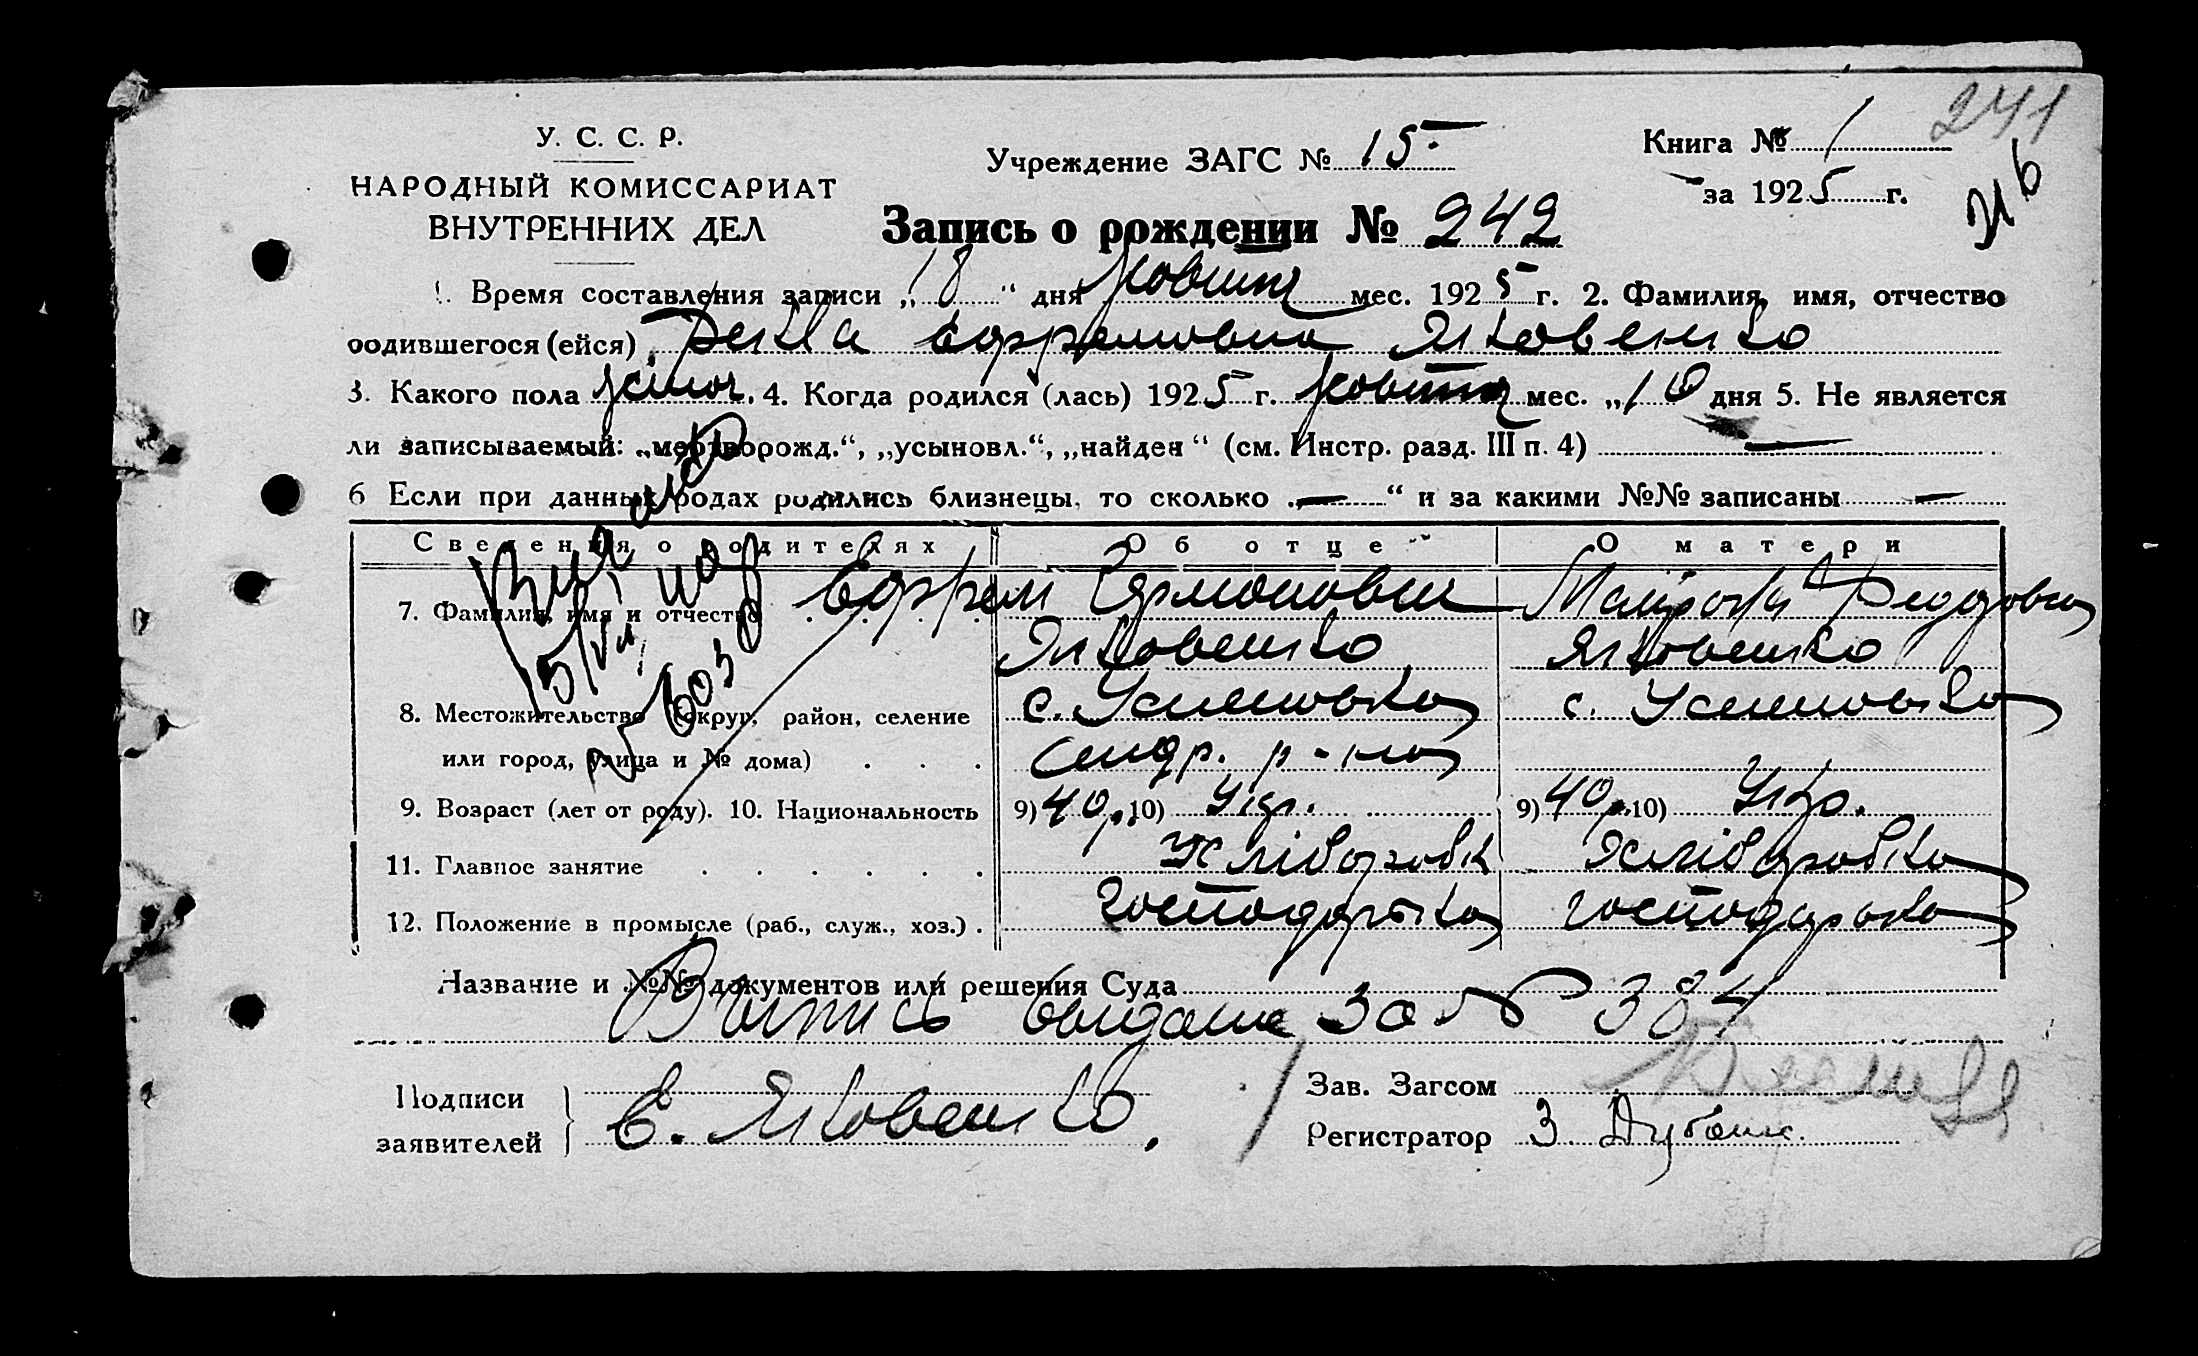 У. С. С. Р.
НАРОДНЫЙ КОМИССАРИАТ
ВНУТРЕННИХ ДЕЛ
Учреждение ЗАГС № 15
Книга № 1 241
за 1925 г.
Запись о рождении № 242
1. Время составления записи „18“ дня жовтня мес. 1925 г. 2. Фамилия, имя, отчество
родившегося (ейся) Текла Ефремовна Яковенко
3. Какого пола жіноч. 4. Когда родился (лась) 1925 г. жовтня мес. „10 дня 5. Не является
ли записываемый: „мертворожд.“, „усыновл.“, „найден“ (см. Инстр. разд. III п. 4) —
6 Если при данных родах родились близнецы, то сколько „—“ и за какими №№ записаны —
Сведения о родителях Об отце О матери
7. Фамилия, имя и отчество Ефрем
Яковенко Яковенко
8. Местожительство (округ, район, селение с. Усимовка с. Усимовка
или город, улица и № дома) р-на
9. Возраст (лет от роду). 10. Национальность 9) 40 р. 10) Укр. 9) 40 р. 10) Укр.
11. Главное занятие Хлібороб
12. Положение в промысле (раб., служ., хоз.) господарька господарька
Название и №№ документов или решения Суда
Выпись выдана за № 384
Подписи
заявителей
Е. Яковенко
Зав. Загсом
Регистратор З.